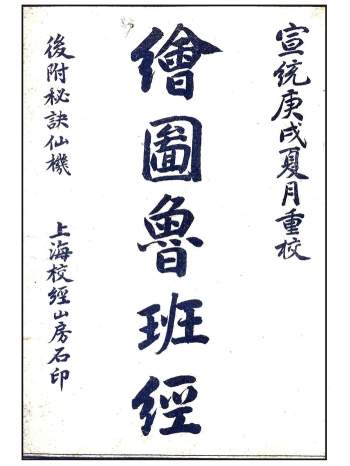 宣統庚戌夏月重校
繪圖魯班經
後附秘訣仙機
上海校經山房石印